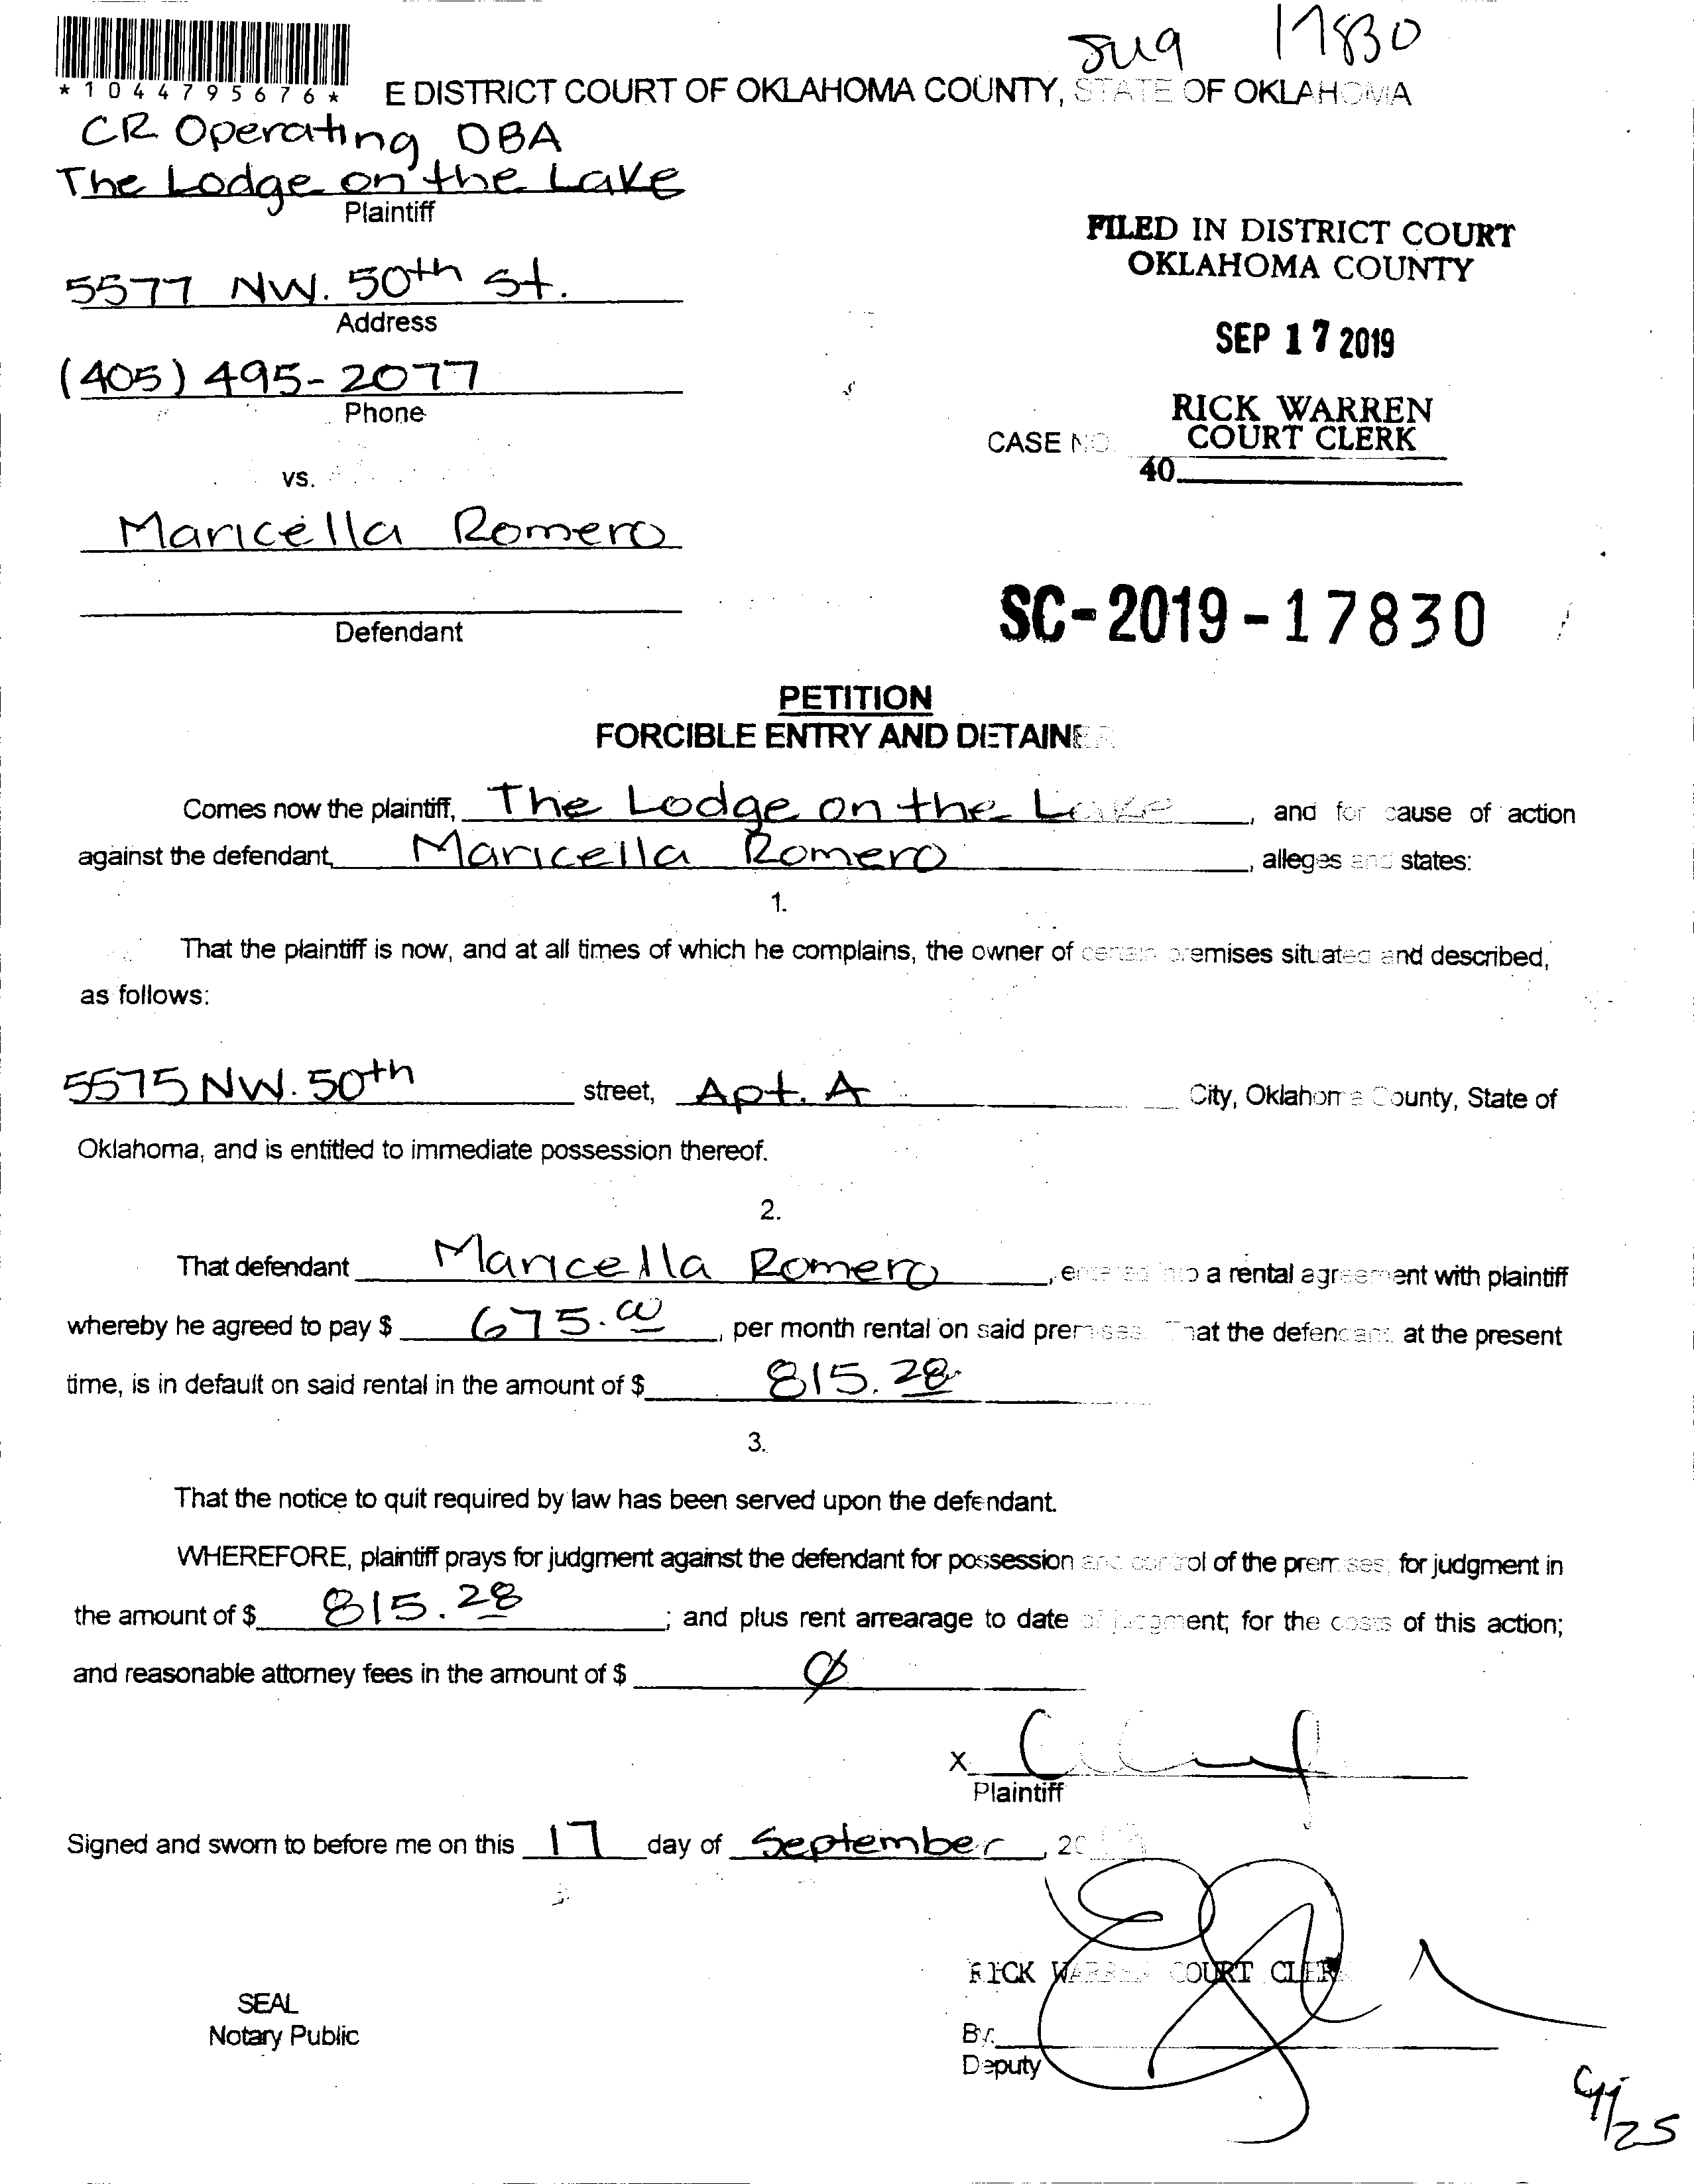 17830
*1044795676*
E DISTRICT COURT OF OKLAHOMA COUNTY, STATE OF OKLAHOMA
CR Operating DBA
The Lodge on the Lake
Plaintiff
FILED IN DISTRICT COURT
OKLAHOMA COUNTY
5577 NW. 50th St.
Address
SEP 17 2019
(405) 495-2077
Phone
RICK WARREN
CASE NO. COURT CLERK
40
vs.
Maricella Romero
Defendant
SC-2019-17830
PETITION
FORCIBLE ENTRY AND DETAINER
Comes now the plaintiff, The Lodge on the Lake, and for cause of action
against the defendant, Maricella Romero, alleges and states:
1.
That the plaintiff is now, and at all times of which he complains, the owner of certain premises situated and described,
as follows:
5575 NW. 50th street, Apt. A City, Oklahoma County, State of
Oklahoma, and is entitled to immediate possession thereof.
2.
That defendant Maricella Romero, entered into a rental agreement with plaintiff
whereby he agreed to pay $ 675.00, per month rental on said premises. That the defendant at the present
time, is in default on said rental in the amount of $ 815.28
3.
That the notice to quit required by law has been served upon the defendant.
WHEREFORE, plaintiff prays for judgment against the defendant for possession and control of the premises; for judgment in
the amount of $ 815.28; and plus rent arrearage to date of judgment; for the costs of this action;
and reasonable attorney fees in the amount of $ Ø
X
Plaintiff
Signed and sworn to before me on this 17 day of September, 20
RICK WARREN COURT CLERK
SEAL
Notary Public
By:
Deputy
9/25